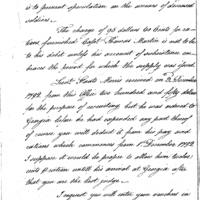 is to prevent speculation on the arrears of deceased
soldiers.
The charge of 93 dollars 60 cents for ra-
tions furnished Capt. Thomas Martin is not to be
to his debit until his account of subsistence em-
braces the period for which the supply was found.
Lieut. Staats Morris received on
1792. from this Office two hundred and fifty dollars
for the purpose of recruiting, but he was ordered to
Georgia before he had expended any part thereof
of course you will deduct it from his pay and
rations which commences from 1st December 1792.
I suppose it would be proper to allow him
until his arrival at Georgia after
that you are the best judge.
I request you will enter your vouchers in